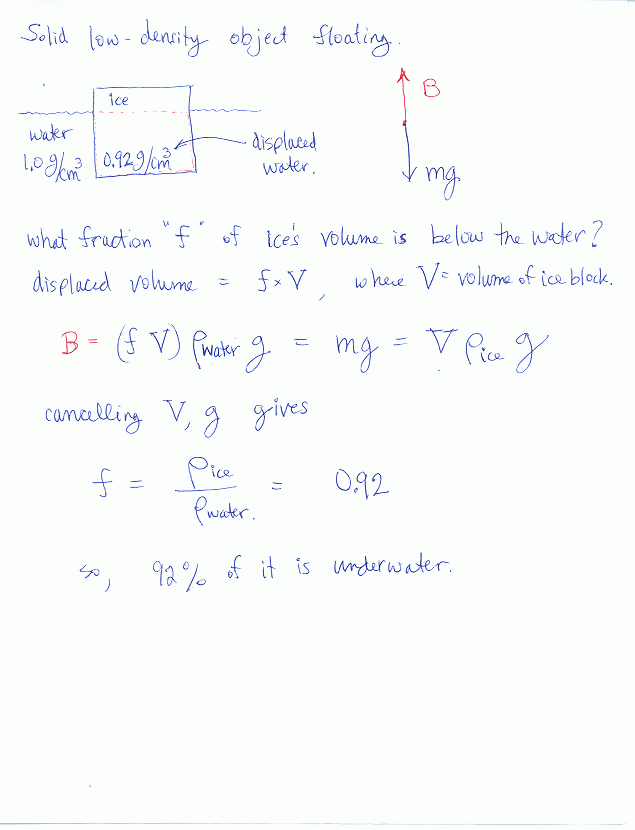 Solid low-density object floating.
ice
B
water
1.0 g/cm³
0.92 g/cm³
displaced
water.
mg
what fraction "f" of ice's volume is below the water?
displaced volume = f × V, where V = volume of ice block.
B = (f V) ρwater g = mg = V ρice g
cancelling V, g gives
f = ρice / ρwater. = 0.92
so, 92% of it is underwater.